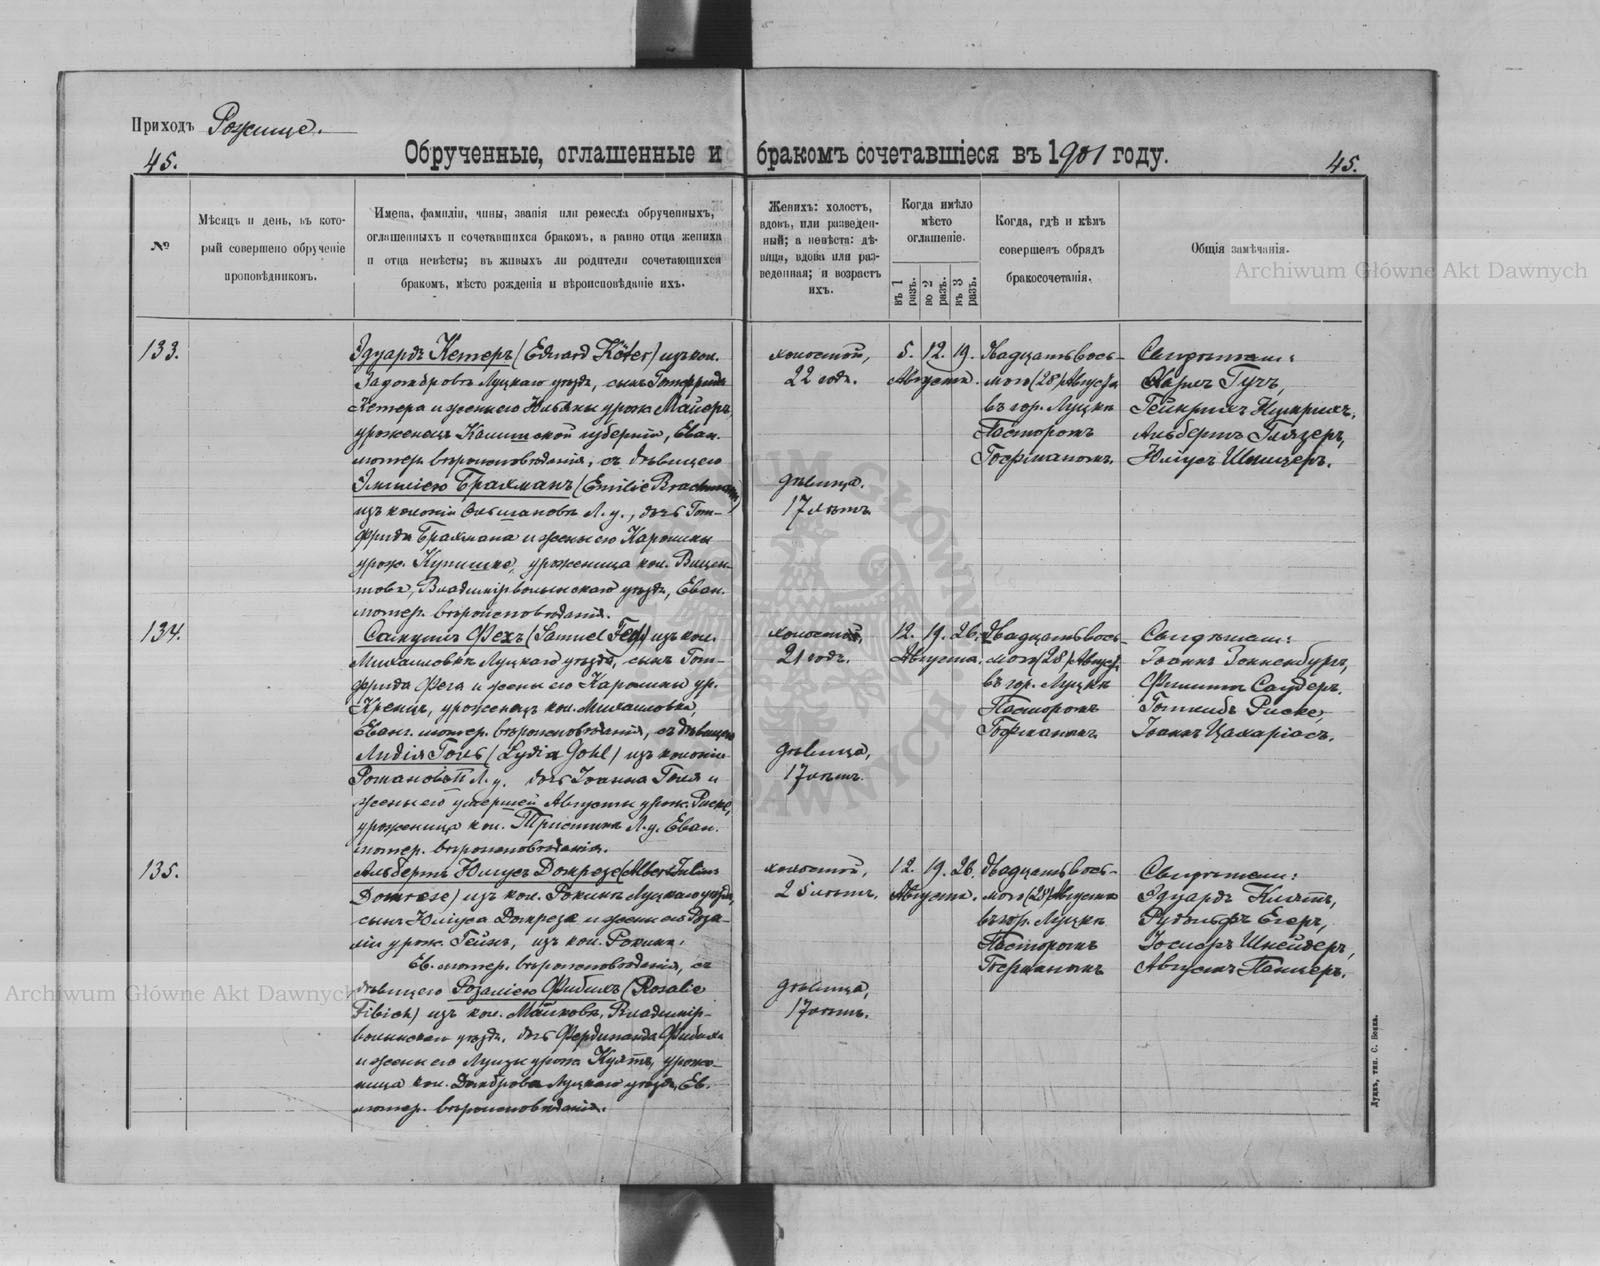 Приходъ Рожище.
45.
Обрученные, оглашенные и бракомъ сочетавшіеся въ 1901 году.
45.
№
Мѣсяцъ и день, въ кото-
рый совершено обрученіе
проповѣдникомъ.
Имена, фамиліи, чины, званія или ремесла обрученныхъ,
оглашенныхъ и сочетавшихся бракомъ, а равно отца жениха
и отца невѣсты; въ живыхъ ли родители сочетающихся
бракомъ, мѣсто рожденія и вѣроисповѣданіе ихъ.
Женихъ: холостъ,
вдовъ, или разведен-
ный; а невѣста: дѣ-
вица, вдова или раз-
веденная; и возрастъ
ихъ.
Когда имѣло
мѣсто
оглашеніе.
въ 1 разъ.
во 2 разъ.
въ 3 разъ.
Когда, гдѣ и кѣмъ
совершенъ обрядъ
бракосочетанія.
Общія замѣчанія.
Archiwum Główne Akt Dawnych
133.
Эдуардъ Кетеръ (Eduard Köter) изъ кол.
Луцкаго уѣзда, сынъ Готфрида
Кетера и жены его Юльяны урож. Майеръ,
уроженецъ Калишской губерніи, Еван.
лютер. вѣроисповѣданія, съ дѣвицею
Эмиліею Брахманъ (Emilie Brachmann)
изъ колоніи Л. у., дочь Гот-
фрида Брахмана и жены его Каролины
урож. уроженица кол.
Владимірволынскаго уѣзда, Еван.
лютер. вѣроисповѣданія.
холостой,
22 годъ.
дѣвица.
17 лѣтъ.
5. 12. 19.
Августа.
Двадцать вось-
мого (28) Августа
въ гор. Луцкѣ
Пасторомъ
Гофманомъ.
Свидѣтели:
Карлъ Гучъ,
Гейнрихъ
Альбертъ Глязеръ,
Юліусъ
134.
Самуилъ Фехъ (Samuel Fech) изъ кол.
Михаловки Луцкаго уѣзда, сынъ Гот-
фрида Феха и жены его Каролины ур.
Кренцъ, уроженецъ кол. Михаловка,
Еванг. лютер. вѣроисповѣданія, съ дѣвицею
Лидія Голь (Lydia Gohl) изъ колоніи
Романовъ II Л. у. дочь Іоанна Голя и
жены его умершей Августы урож. Риске,
уроженица кол. Л. у. Еван.
лютер. вѣроисповѣданія.
холостой,
21 годъ.
дѣвица,
17 лѣтъ.
12. 19. 26.
Августа.
Двадцать вось-
мого (28) Августа
въ гор. Луцкѣ
Пасторомъ
Гофманомъ
Свидѣтели:
Іоаннъ
Филиппъ Саудеръ,
Готлибъ Риске,
Іоаннъ Цахаріасъ.
135.
Альбертъ Юліусъ Домрезе (Albert Julius
Domrese) изъ кол. Рокини Луцкаго уѣзда,
сынъ Юліуса Домрезе и жены его Роза-
ліи урож. Гейнъ, изъ кол. Рокини.
Ев. лютер. вѣроисповѣданія, съ
дѣвицею Розаліею Фибихъ (Rosalie
Fibich) изъ кол. Владимір-
волынскаго уѣзда, дочь Фердинанда Фибиха
и жены его Луизы урож. уроже-
ница кол. Домброва Луцкаго уѣзда, Ев.
лютер. вѣроисповѣданія.
холостой,
25 лѣтъ.
дѣвица,
17 лѣтъ.
12. 19. 26.
Августа.
Двадцать вось-
мого (28) Августа
въ гор. Луцкѣ
Пасторомъ
Гофманомъ
Свидѣтели:
Эдуардъ
Рудольфъ Егеръ,
Іосифъ Шнейдеръ,
Августъ
Archiwum Główne Akt Dawnych
Луцкъ, тип. С. Бокса.